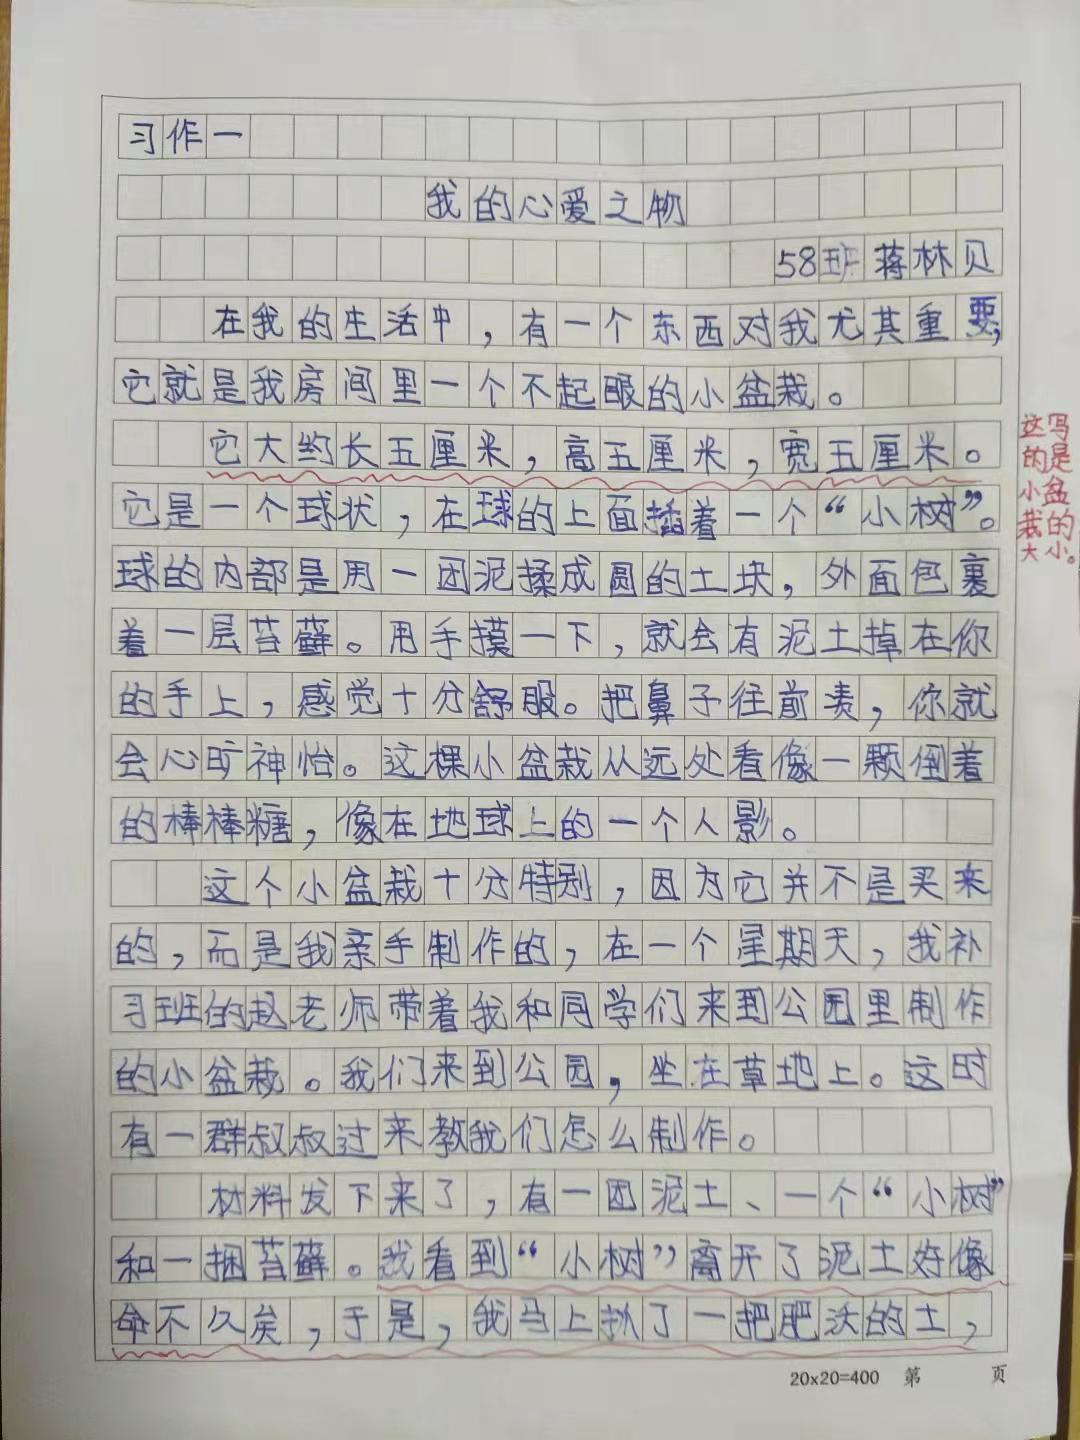 习作一
我的心爱之物
58班蒋林贝
在我的生活中，有一个东西对我尤其重要，
它就是我房间里一个不起眼的小盆栽。
它大约长五厘米，高五厘米，宽五厘米。
它是一个球状，在球的上面插着一个“小树”。
球的内部是用一团泥揉成圆的土块，外面包裹
着一层苔藓。用手摸一下，就会有泥土掉在你
的手上，感觉十分舒服。把鼻子往前凑，你就
会心旷神怡。这棵小盆栽从远处看像一颗倒着
的棒棒糖，像在地球上的一个人影。
这个小盆栽十分特别，因为它并不是买来
的，而是我亲手制作的，在一个星期天，我补
习班的赵老师带着我和同学们来到公园里制作
的小盆栽。我们来到公园，坐在草地上。这时
有一群叔叔过来教我们怎么制作。
材料发下来了，有一团泥土、一个“小树”
和一捆苔藓。我看到“小树”离开了泥土好像
命不久矣，于是，我马上扒了一把肥沃的土，
这写
的是
小盆
栽的
大小。
20x20=400 第 页